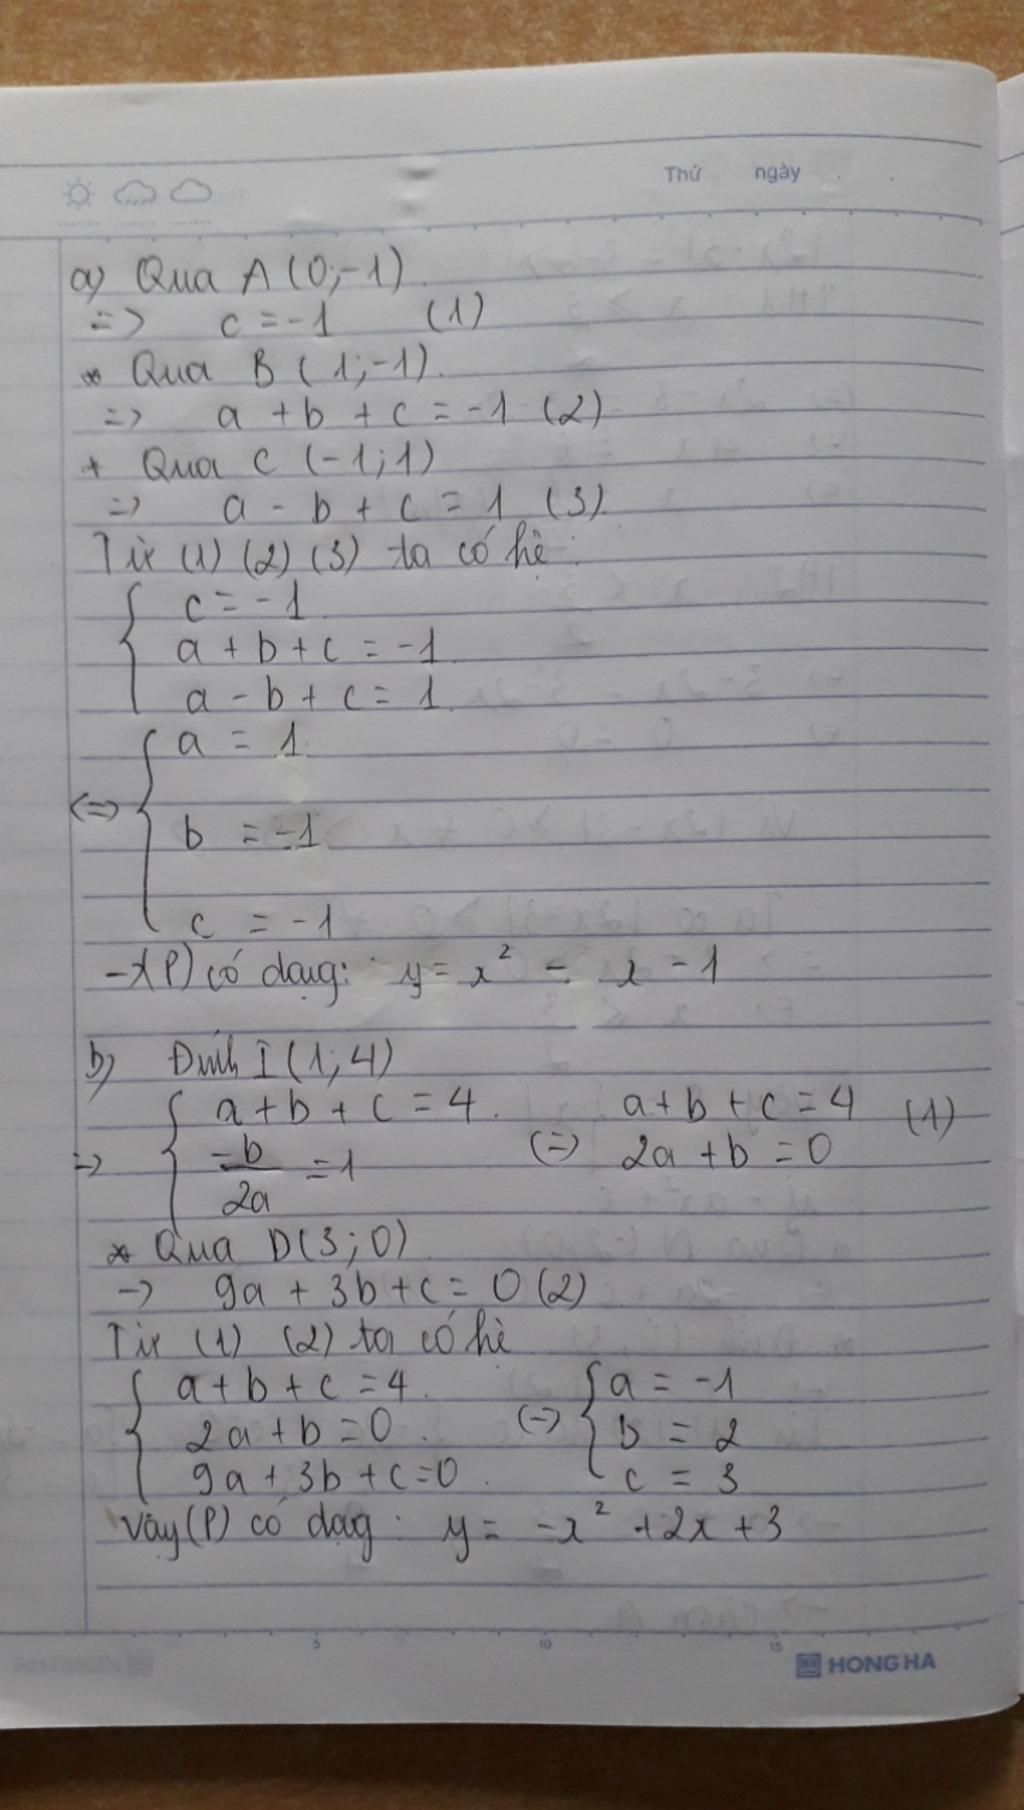 Thứ ngày
a) Qua A (0;-1)
=> c = -1 (1)
* Qua B (1;-1).
=> a + b + c = -1 (2)
+ Qua C (-1;1)
=> a - b + c = 1 (3).
Từ (1) (2) (3) ta có hệ:
{ c = -1
a + b + c = -1
a - b + c = 1
<=> { a = 1
b = -1
c = -1
-> (P) có dạng: y = x² - x - 1
b) Đỉnh I (1; 4)
=> { a + b + c = 4. <=> a + b + c = 4 (1)
-b/2a = 1 2a + b = 0
* Qua D(3;0)
-> 9a + 3b + c = 0 (2)
Từ (1) (2) ta có hệ
{ a + b + c = 4. <-> { a = -1
2a + b = 0. b = 2
9a + 3b + c = 0. c = 3
Vậy (P) có dạg: y = -x² + 2x + 3
5 10 15
HONG HA